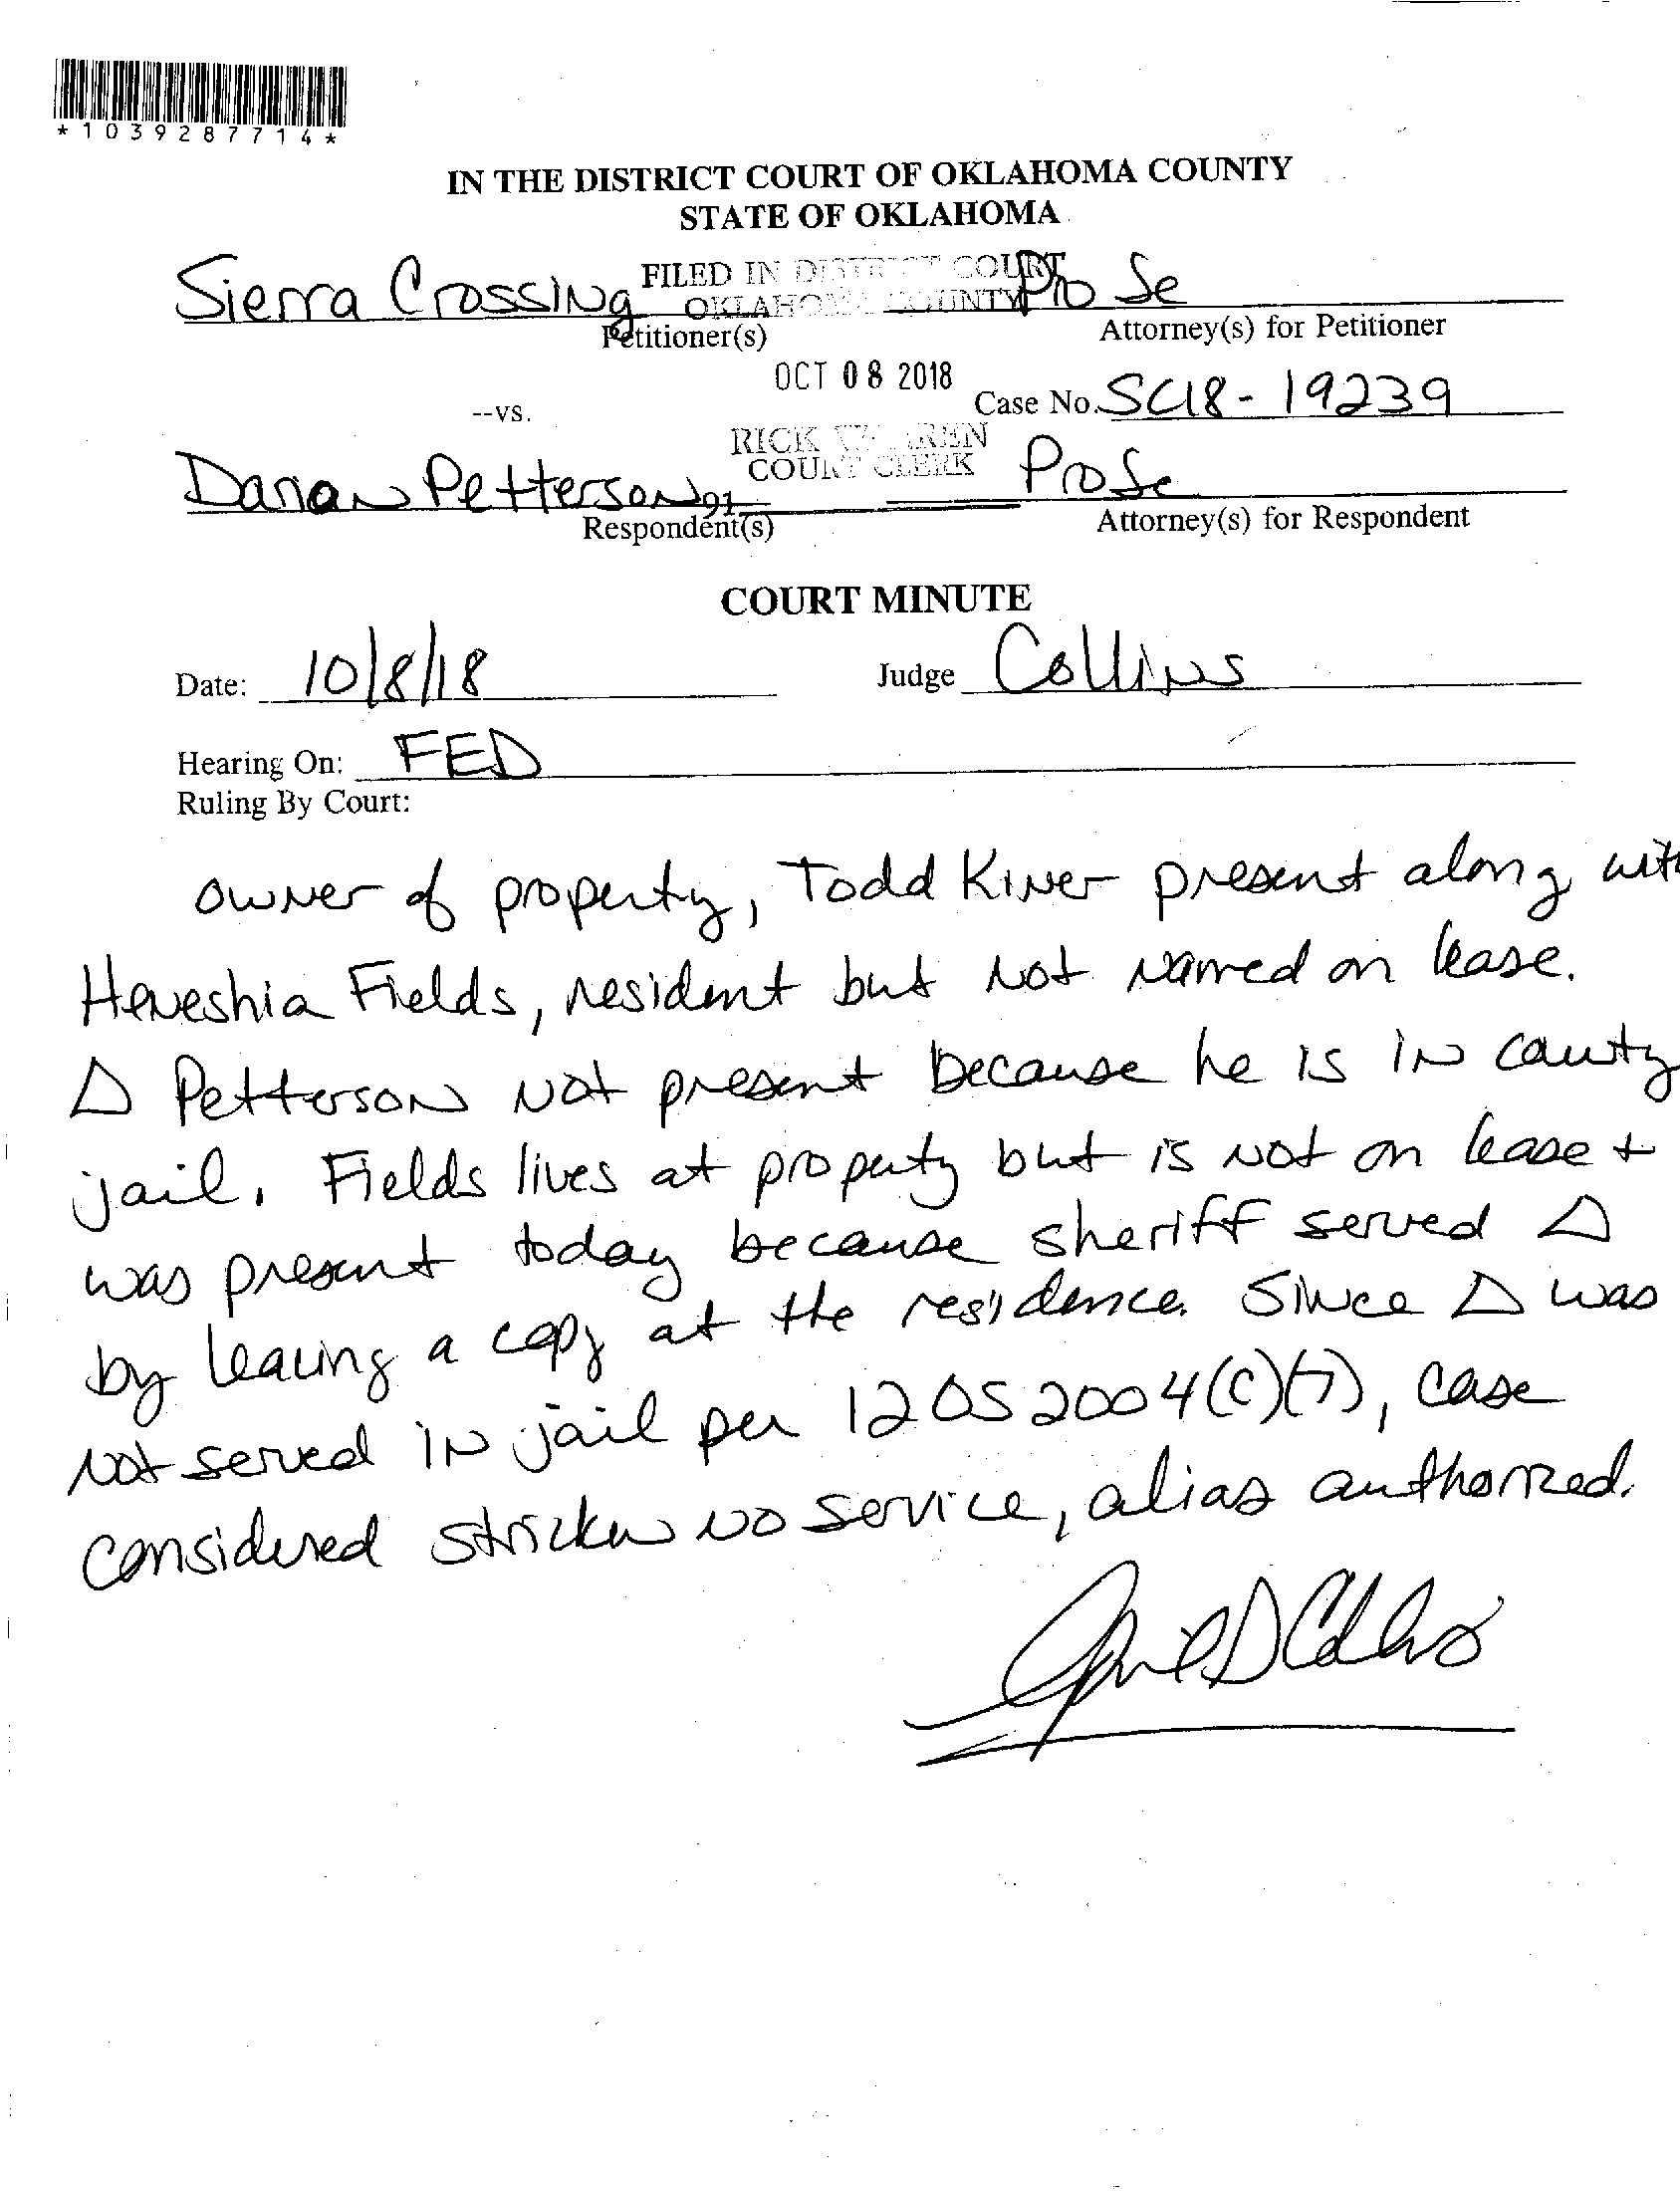 *1039287714*
IN THE DISTRICT COURT OF OKLAHOMA COUNTY
STATE OF OKLAHOMA
Sierra Crossing
FILED IN DISTRICT COURT
OKLAHOMA COUNTY
Pro Se
Petitioner(s)
Attorney(s) for Petitioner
OCT 08 2018
--vs.
Case No. SC18-19239
RICK WARREN
COURT CLERK
Darian Petterson
91
Pro Se
Respondent(s)
Attorney(s) for Respondent
COURT MINUTE
Date: 10/8/18
Judge Collins
Hearing On: FED
Ruling By Court:
owner of property, Todd Kiner present along with
Heneshia Fields, resident but not named on lease.
Δ Petterson not present because he is in county
jail. Fields lives at property but is not on lease +
was present today because sheriff served Δ
by leaving a copy at the residence. Since Δ was
not served in jail per 12 OS 2004(C)(7), case
considered stricken no service, alias authorized.